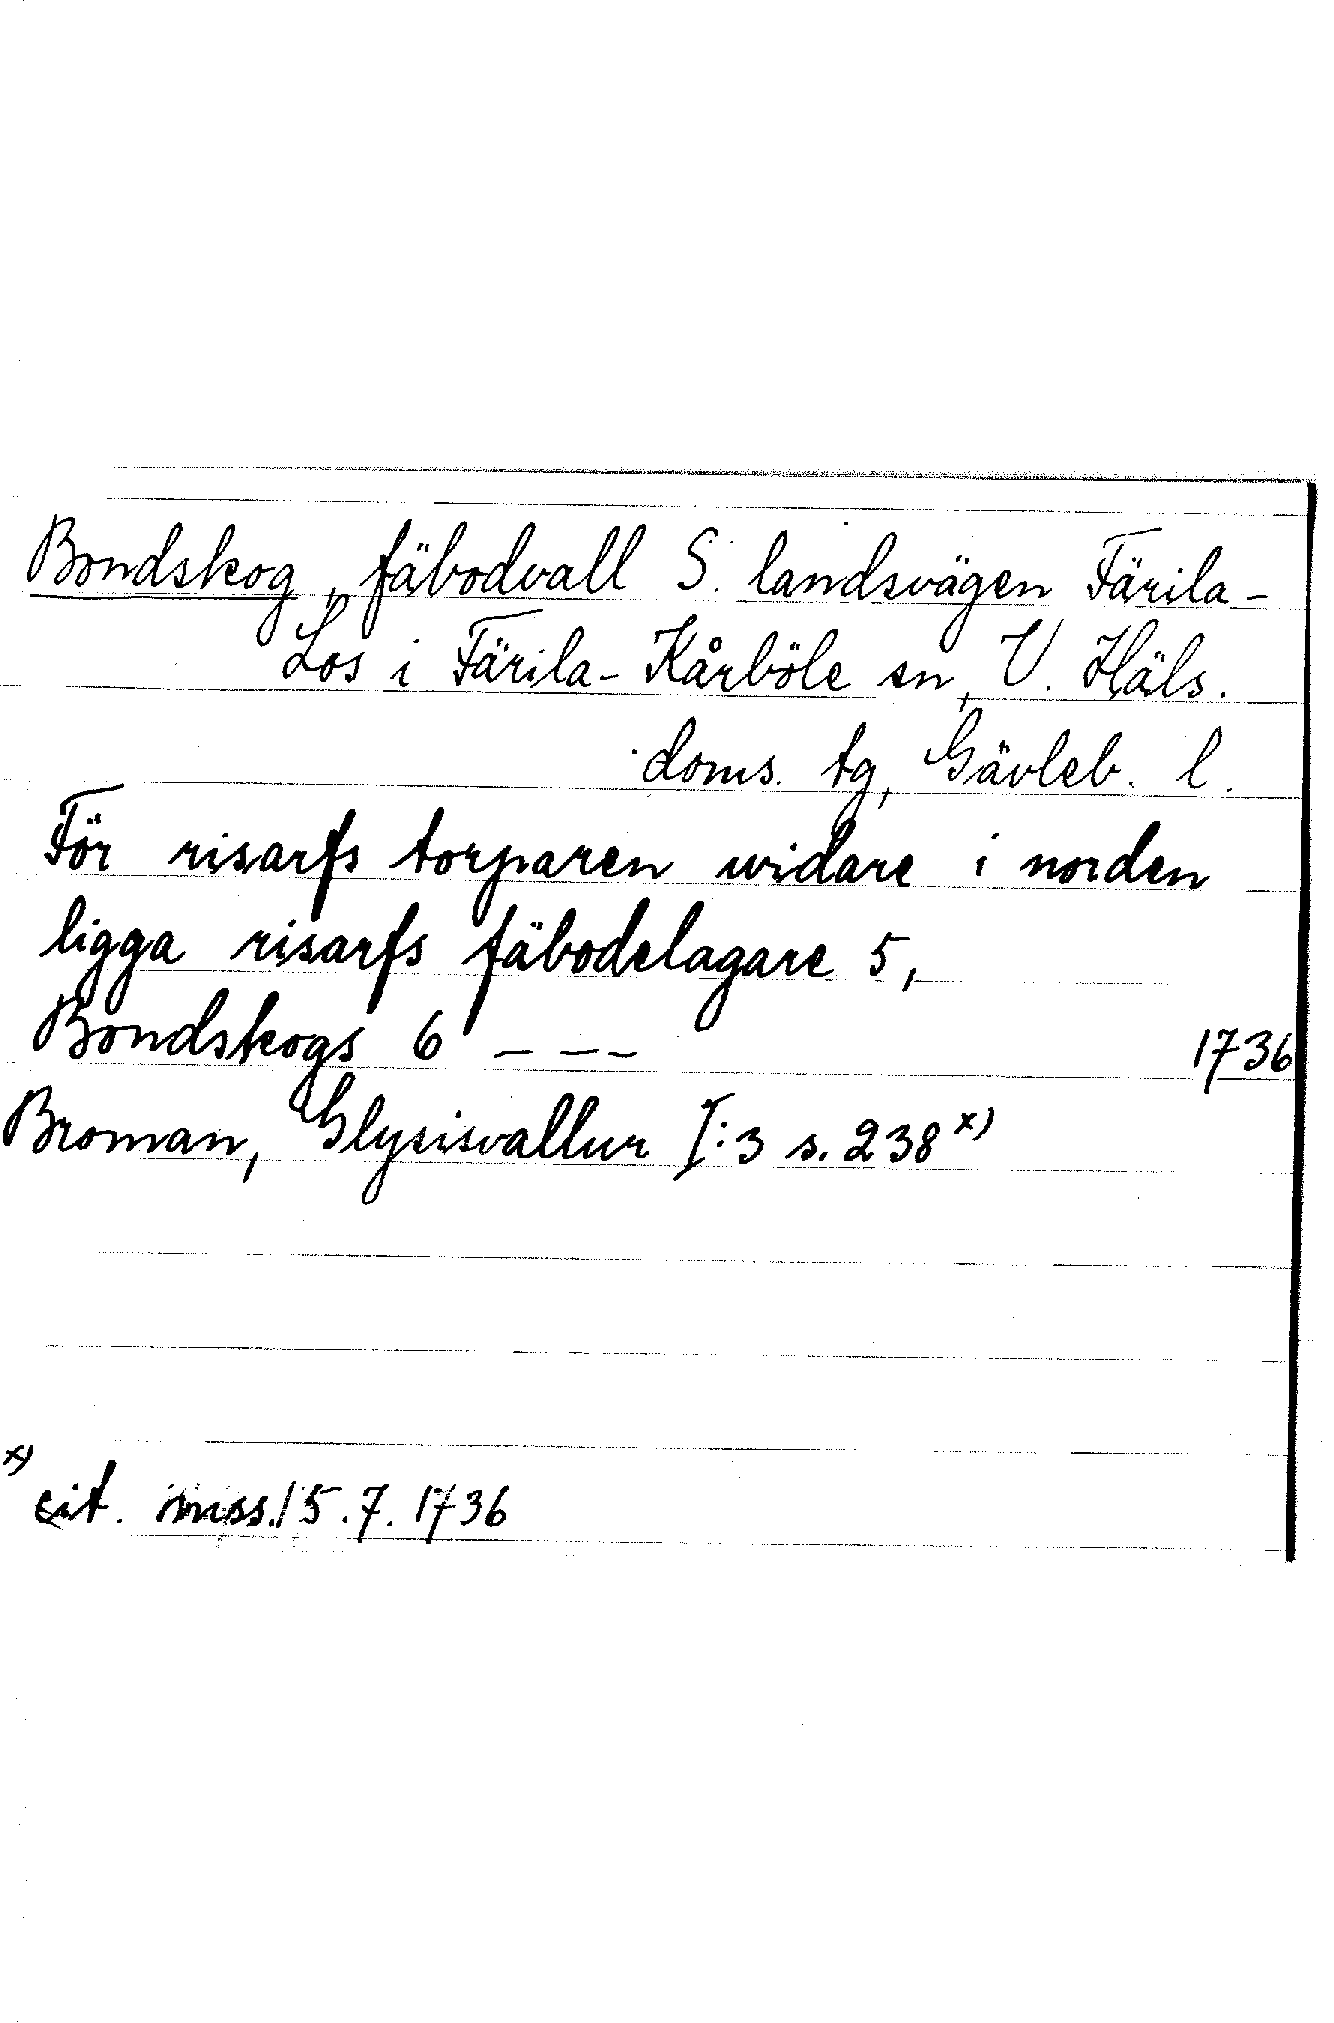 Bondskog, fäbodvall S. landsvägen Färila-
Los i Färila-Kårböle sn, V. Häls.
doms. tg, Gävleb. l.
För risarfs torparen widare i norden
ligga risarfs fäbodelagare 5,
Bondskogs 6 - - - 1736
Broman, Glysisvallur I:3 s. 238 x)
x) cit. miss. 15.7.1736